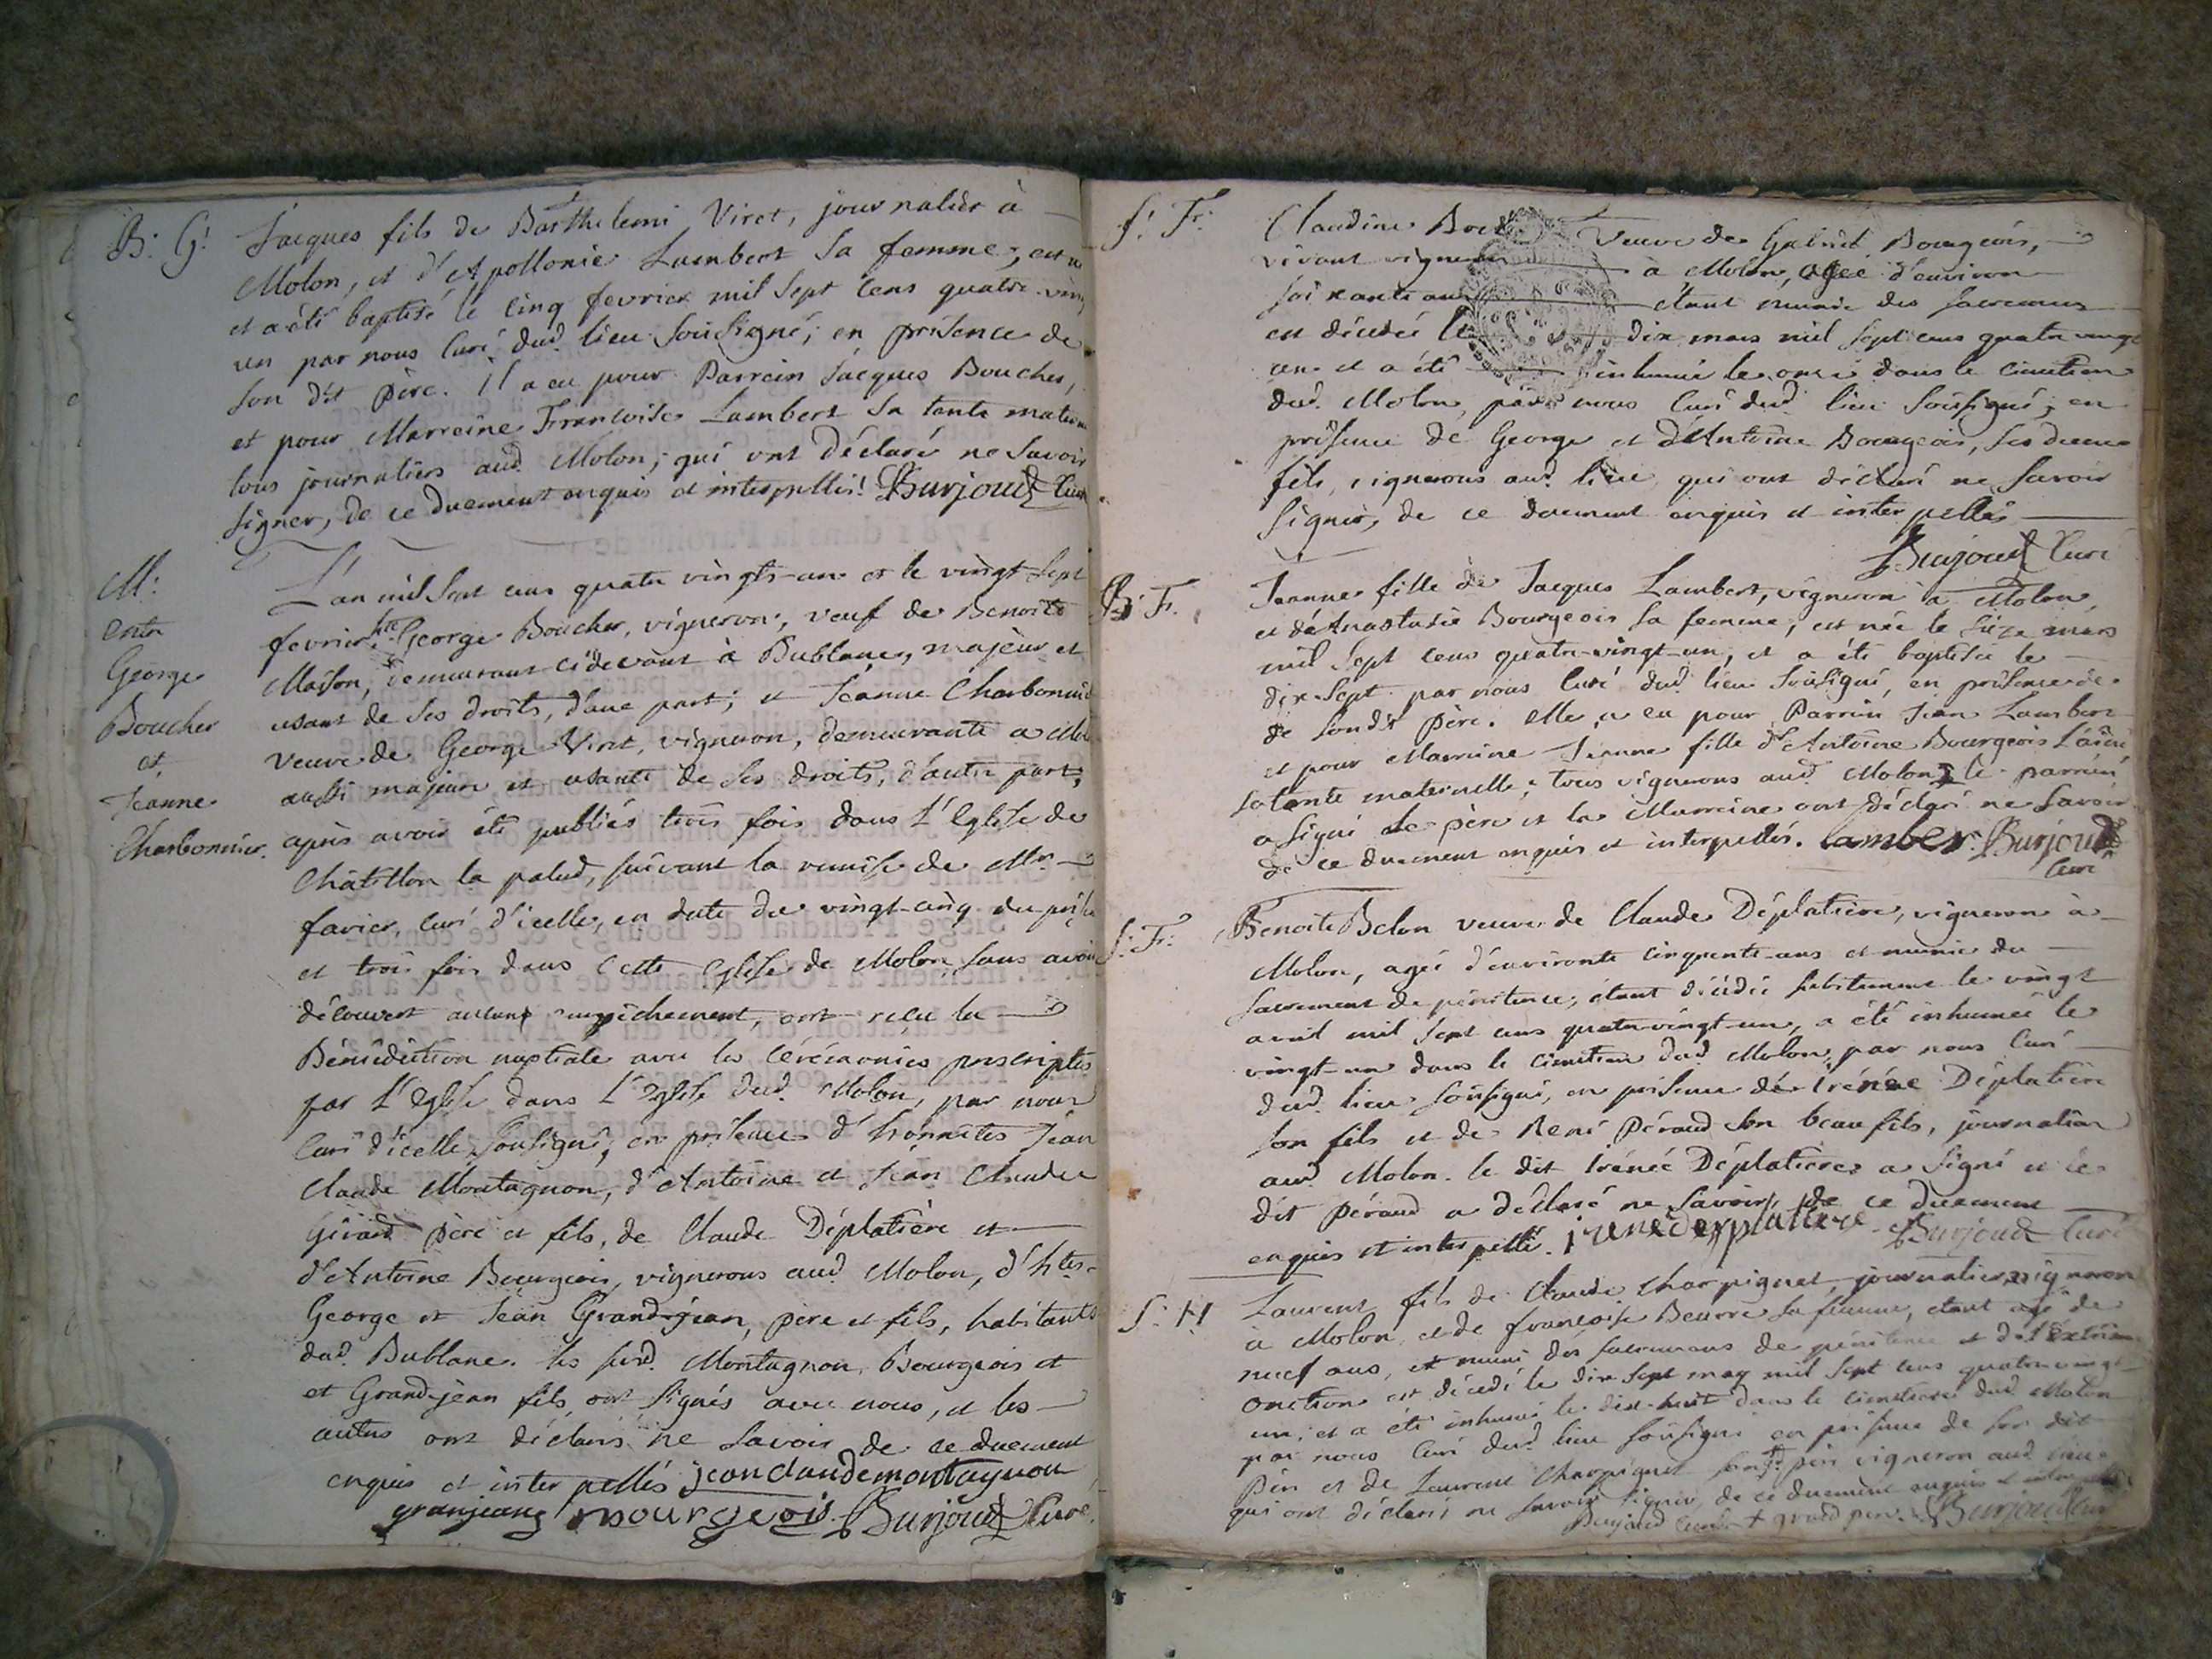 B: G:
Jacques fils de Barthelemi Viret, journalier à
Molon, et d'Apollonie Lambert sa femme, est n
et a été baptisé le cinq fevrier mil sept cens quatre ving
un par nous Curé dud. lieu soussigné; en présence de
son dit père. Il a eu pour Parrein Jacques Boucher,
et pour Marreine Françoise Lambert sa tante mater
tous journaliers aud. Molon; qui ont déclaré ne savoir
signer, de ce duement enquis et interpellés! Burjoud Curé
M:
entre
George
Boucher
et
Jeanne
Charbonnier.
L'an mil sept cens quatre vingts-un et le vingt-sept
fevrier, hte. George Boucher, vigneron, veuf de Benoite
Maison, demeurant cidevant à Bublane, majeur et
usant de ses droits, d'une part; et Jeanne Charbonnié
veuve de George Viret, vigneron, demeurante a Mol
aussi majeure et usante de ses droits, d'autre part;
après avoir été publiés trois fois dans L'Eglise de
Châtillon la palud, suivant la remise de Mr.
favier, Curé d'icelle, en date du vingt-cinq du prése
et trois fois dans cette Eglise de Molon, sans avoir
découvert aucun empêchement, ont reçu la
Bénédiction nuptiale avec les Cérémonies prescriptes
par L'Eglise dans L'Eglise dud. Molon, par nous
Curé d'icelle soussigné, en présence d'honnêtes Jean
Claude Montagnon, d'Antoine et Jean Claude
Girard père et fils, de Claude Déplatière et
d'Antoine Bourgeois, vignerons aud. Molon, d'htes.
George et Jean Grand-jean, père et fils, habitants
dud. Bublane. les susd. Montagnon, Bourgeois et
et Grand-jean fils, ont signés avec nous, et les
autres ont déclaré ne savoir de ce duement
enquis et interpellés jean claude montagnon
granjean bourgeois Burjoud Curé.
S: F:
Claudine veuve de Gabriel Bourgeois,
vivant vigneron à Molon, agée d'environ
soixante ans étant munie des sacremens
est décédée le dix mars mil sept cens quatre vingt
un et a été inhumée le onze dans le cimetiere
dud. Molon, par nous Curé dud. lieu soussigné; en
présence de George et d'Antoine Bourgeois, ses deux
fils, vignerons aud. lieu, qui ont déclaré ne savoir
signer, de ce duement enquis et interpellés
Burjoud Curé
B: F.
Jeanne fille de Jacques Lambert, vigneron à Molon,
et d'Anastasie Bourgeois sa femme, est née le seize mars
mil sept cens quatre-vingt-un, et a été baptisée le
dix-sept par nous Curé dud. lieu soussigné, en présence de
de sondit père. elle a eu pour Parrein Jean Lambert
et pour Marreine Jeanne fille d'Antoine Bourgeois L'ainé
sa tante maternelle; tous vignerons aud. Molon, le parrein
a signé le père et la Marreine ont déclaré ne savoir
de ce duement enquis et interpellés. lamber Burjoud
Curé
S: F:
Benoite Belon veuve de Claude Déplatière, vigneron à
Molon, agée d'environ cinquante ans et munie du
sacrement de pénitence, étant décédée subitement le vingt
avril mil sept cens quatre-vingt-un, a été inhumée le
vingt-un dans le cimetiere dud. Molon, par nous Curé
dud. lieu soussigné, en présence de Irénée Déplatière
son fils et de René Péraud son beau fils, journalier
aud. Molon. le dit Irénée Déplatière a signé et le
dit Péraud a déclaré ne savoir, de ce duement
enquis et interpellé. irene desplatiere Burjoud Curé
S: H
Laurent fils de Claude Charpignet, journalier vigneron
à Molon, et de françoise Beurre sa femme, étant agé de
neuf ans, et muni des sacremens de pénitence et d'Extrême
onction est décédé le dix sept may mil sept cens quatre-vingt
un; et a été inhumé le dix-huit dans le cimetiere dud. Molon
par nous Curé dud. lieu soussigné en présence de son dit
Père et de Laurent Charpignet son + père vigneron aud. lieu
qui ont déclaré ne savoir signer, de ce duement enquis et
Burjoud Curé + grand père. Burjoud Curé